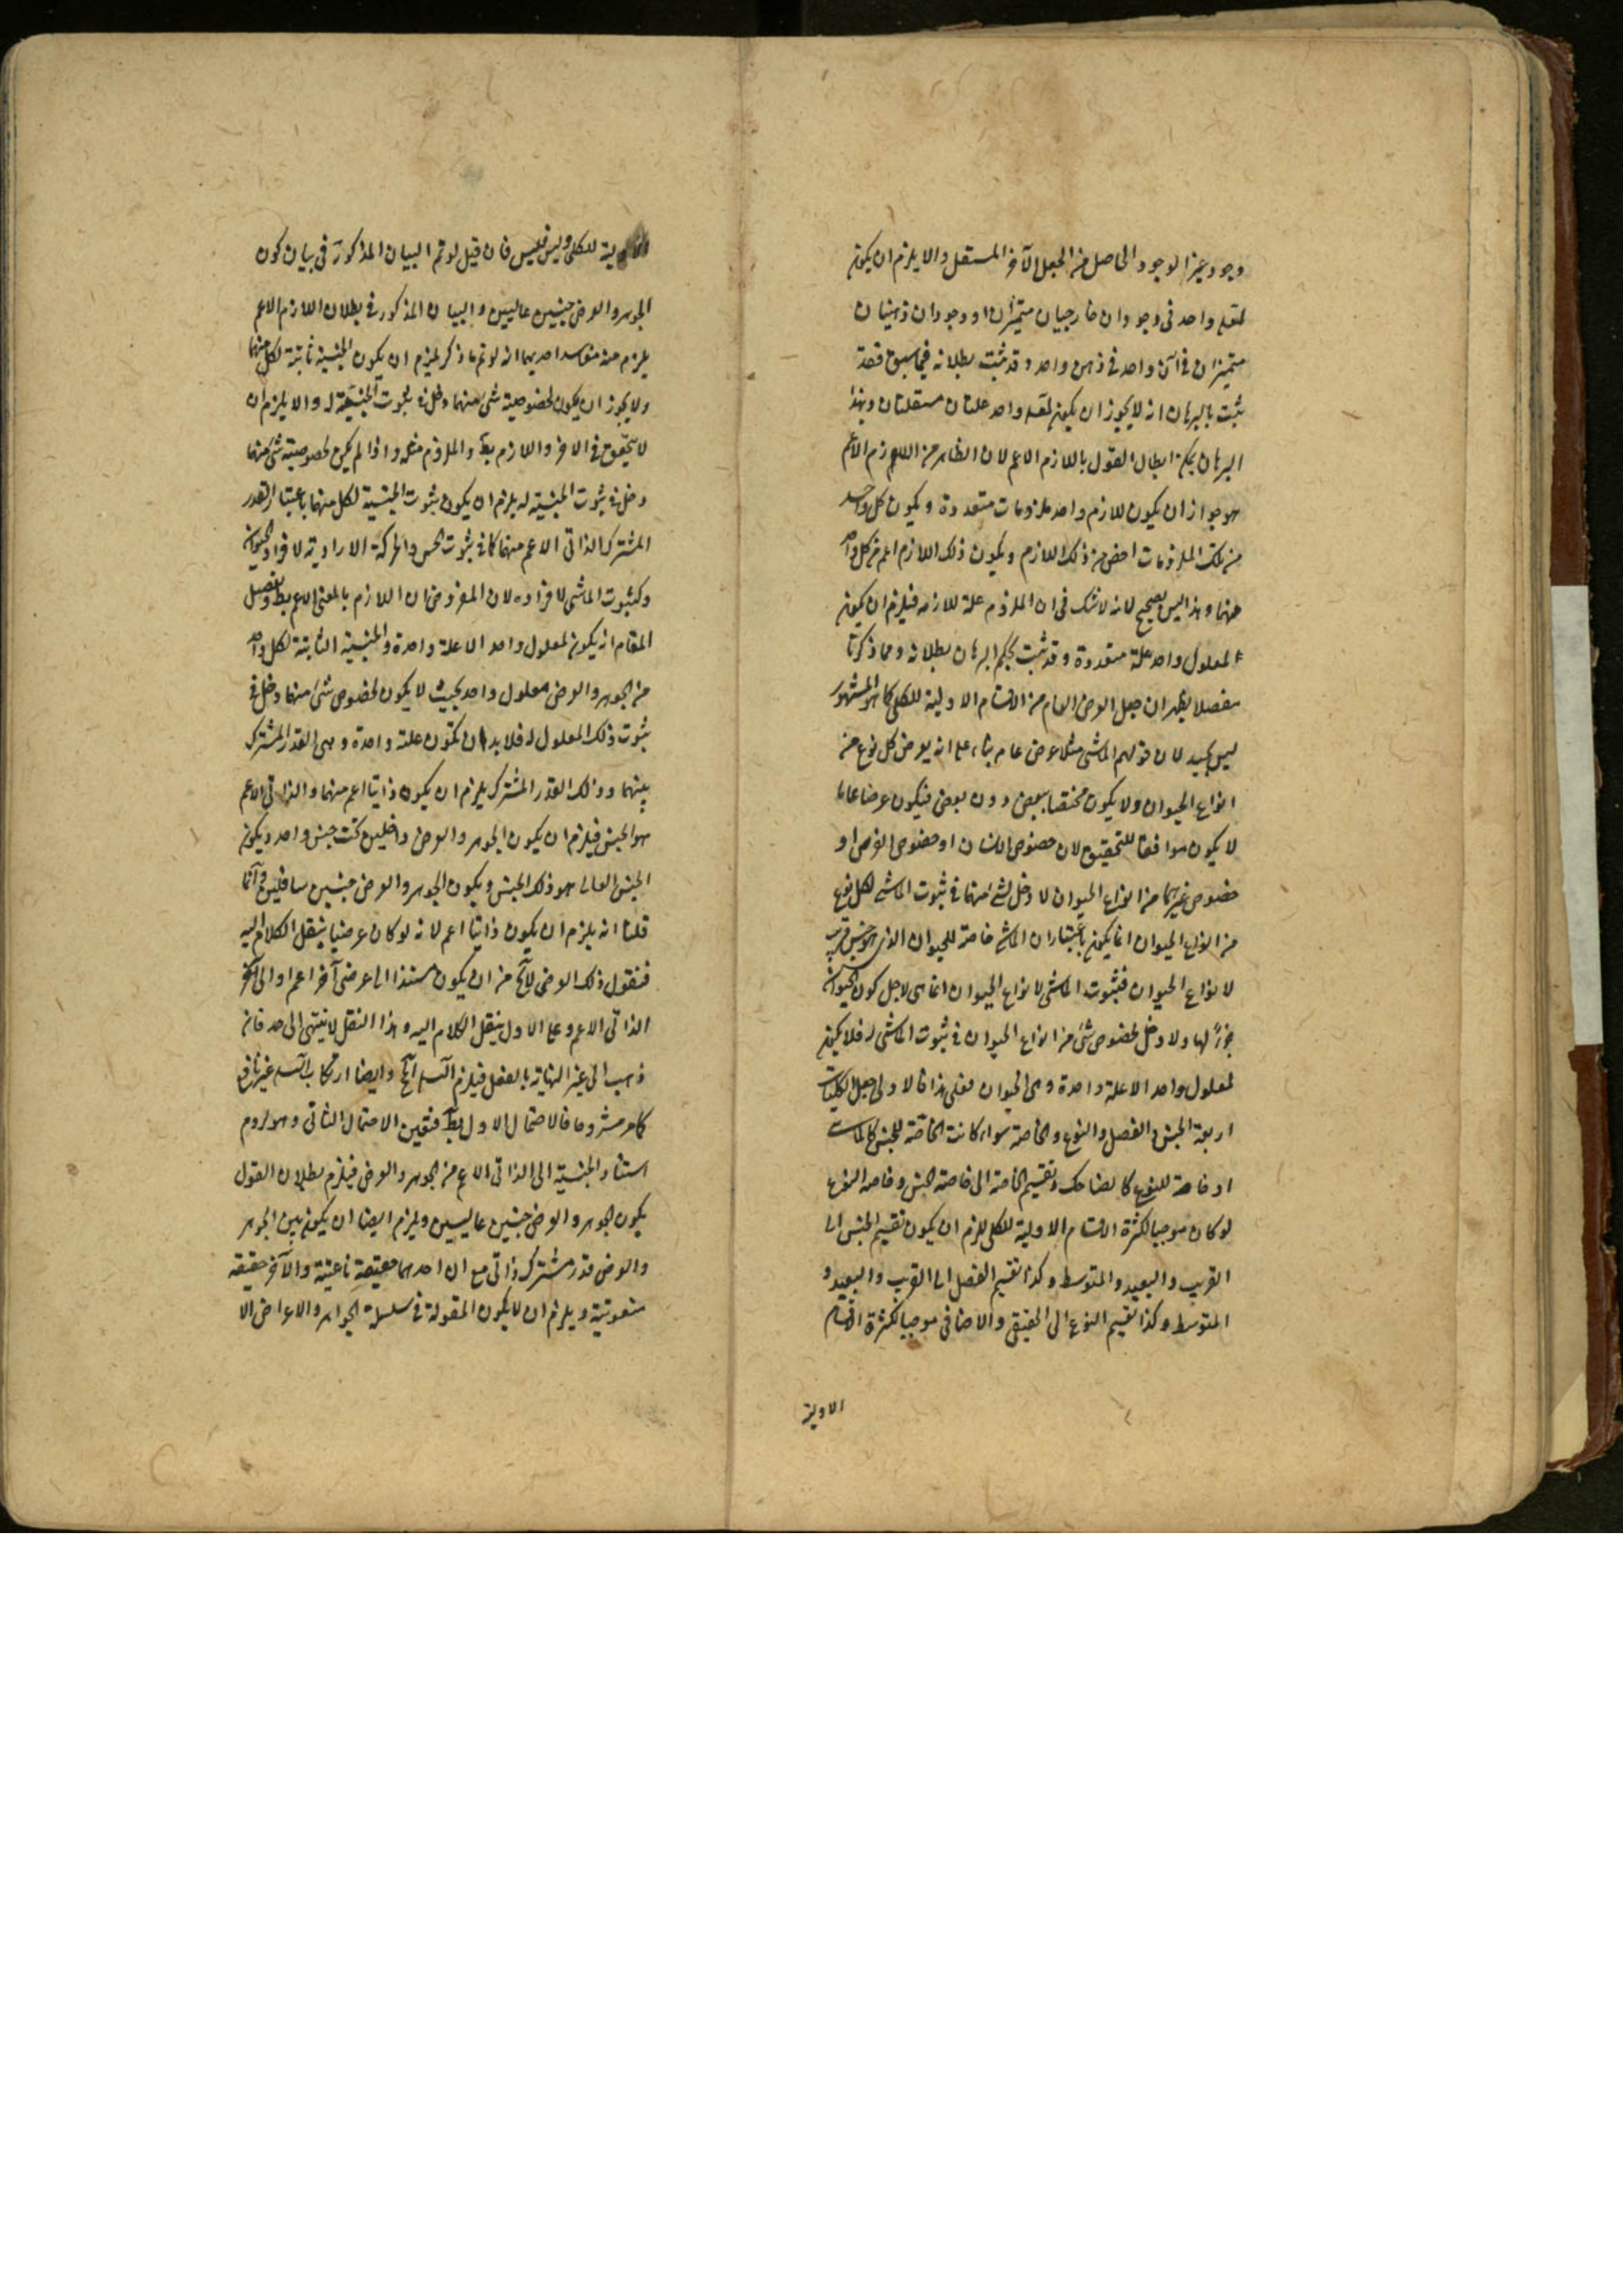 وجود غير الوجود الحاصل من الجعل الآخر المستقل والا يلزم ان يكون
لمعلول واحد في وجودان خارجيان متميزان او وجودان ذهنيان
متميزان في آن واحد في ذهن واحد وقد ثبت بطلانه فيما سبق فقد
ثبت بالبرهان انه لا يجوز ان يكون لمعلول واحد علتان مستقلتان وبهذا
البرهان يمكن ابطال القول باللازم الاعم لان الظاهر من اللازم الاعم
هو جواز ان يكون للازم واحد ملزومات متعددة ويكون كل واحد
من تلك الملزومات اخص من ذلك اللازم ويكون ذلك اللازم اعم من كل واحد
منها وهذا ليس بصحيح لانه لا شك في ان الملزوم علة للازمه فيلزم ان يكون
لمعلول واحد علة متعددة وقد ثبت بحكم البرهان بطلانه ومما ذكرنا
مفصلا يظهر ان جعل العرض العام من الاقسام الاولية للكلي كما هو المشهور
ليس بجيد لان قولهم الماشي مثلا عرض عام بناء على انه يعرض كل نوع من
انواع الحيوان ولا يكون مختصا ببعض دون بعض فيكون عرضا عاما
لا يكون موافقا للتحقيق لان خصوص الانسان او خصوص الفرس او
خصوص غيرهما من انواع الحيوان لا دخل لشئ منها في ثبوت الماشي لكل نوع
من انواع الحيوان انما يكون باعتبار ان الماشي خاصة للحيوان الذي هو جنس قريب
لانواع الحيوان فثبوت الماشي لانواع الحيوان انما هي لاجل كون الحيوان
جزءً لها ولا دخل لخصوص شئ من انواع الحيوان في ثبوت الماشي له فلا يكون
لمعلول واحد الا علة واحدة وهي الحيوان فعلى هذا فالاولى جعل الكليات
اربعة الجنس والفصل والنوع والخاصة سواء كانت الخاصة للجنس كالماشي
او خاصة للنوع كالضاحك وتقسيم الخاصة الى خاصة الجنس وخاصة النوع
لو كان موجبا لكثرة الاقسام الاولية للكلي للزم ان يكون تقسيم الجنس الى
القريب والبعيد والمتوسط وكذا تقسيم الفصل الى القريب والبعيد و
المتوسط وكذا تقسيم النوع الى الحقيقي والاضافي موجبا لكثرة الاقسام
الاولية
الاولية للكلي وليس فليس فان قيل لو تم البيان المذكور في بيان كون
الجوهر والعرض جنسين عاليين والبيان المذكور في بطلان اللازم الاعم
يلزم منه مفاسد احديها انه لو تم ما ذكر لزم ان يكون الجنسية ثابتة لكل منهما
ولا يجوز ان يكون لخصوصية شئ منهما دخل في ثبوت الجنسية له والا يلزم ان
لا يتحقق في الاخر واللازم بط والملزوم مثله واذا لم يكن لخصوصية شئ منهما
دخل في ثبوت الجنسية له يلزم ان يكون ثبوت الجنسية لكل منهما باعتبار القدر
المشترك الذاتي الاعم منهما كما في ثبوت الحس والحركة الارادية لافراد الحيوان
وكثبوت الماشي لافراده لان المفروض ان اللازم بالمعنى الاعم بط وتفصيل
المقام انه يكون لمعلول واحد الا علة واحدة والجنسية الثابتة لكل واحد
من الجوهر والعرض معلول واحد بحيث لا يكون لخصوص شئ منهما دخل في
ثبوت ذلك المعلول له فلا بد ان تكون علته واحدة وهي القدر المشترك
بينهما وذلك القدر المشترك يلزم ان يكون ذاتيا اعم منهما والذاتي الاعم
هو الجنس فيلزم ان يكون الجوهر والعرض داخلين تحت جنس واحد ويكون
الجنس العالي هو ذلك الجنس ويكون الجوهر والعرض جنسين سافلين وانما
قلنا انه يلزم ان يكون ذاتيا اعم لانه لو كان عرضيا ينقل الكلام اليه
فنقول ذلك العرضي لا يخ من ان يكون مستندا الى عرضي آخر اعم او الى الامر
الذاتي الاعم وعلى الاول ينقل الكلام اليه وهذا النقل لا ينتهي الى حد فانه
ذهب الى غير النهاية بالفعل فيلزم التسلسل المح وايضا ارتكاب التسلسل غير نافع
كما مر مشروحا فالاحتمال الاول بط فتعين الاحتمال الثاني وهو لزوم
استناد الجنسية الى الذاتي الاعم من الجوهر والعرض فيلزم بطلان القول
بكون الجوهر والعرض جنسين عاليين ويلزم ايضا ان يكون بين الجوهر
والعرض قدر مشترك ذاتي مع ان احدهما حقيقة ناعتية والآخر حقيقة
منعوتية ويلزم ان لا يكون المقولة في سلسلة الجواهر والاعراض الا